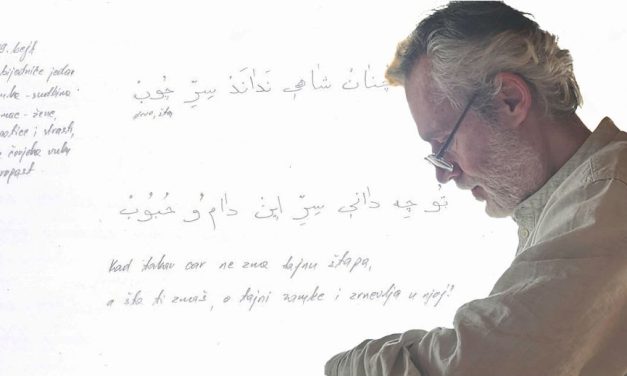 9. bejt
bijedniče jedan
mke - sudbina
mac - žene,
astice i strasti,
čovjeka vuku
ropast.
چُنانْ شاهِي نَدانَدْ سِرِّ چُوبْ
drvo, šta
تُو چِه دانِي سِرِّ اينْ دام وُ حُبُوبْ
Kad takav car ne zna tajnu štapa,
a šta ti znaš, o tajni zamke i zrnevlja u njoj?